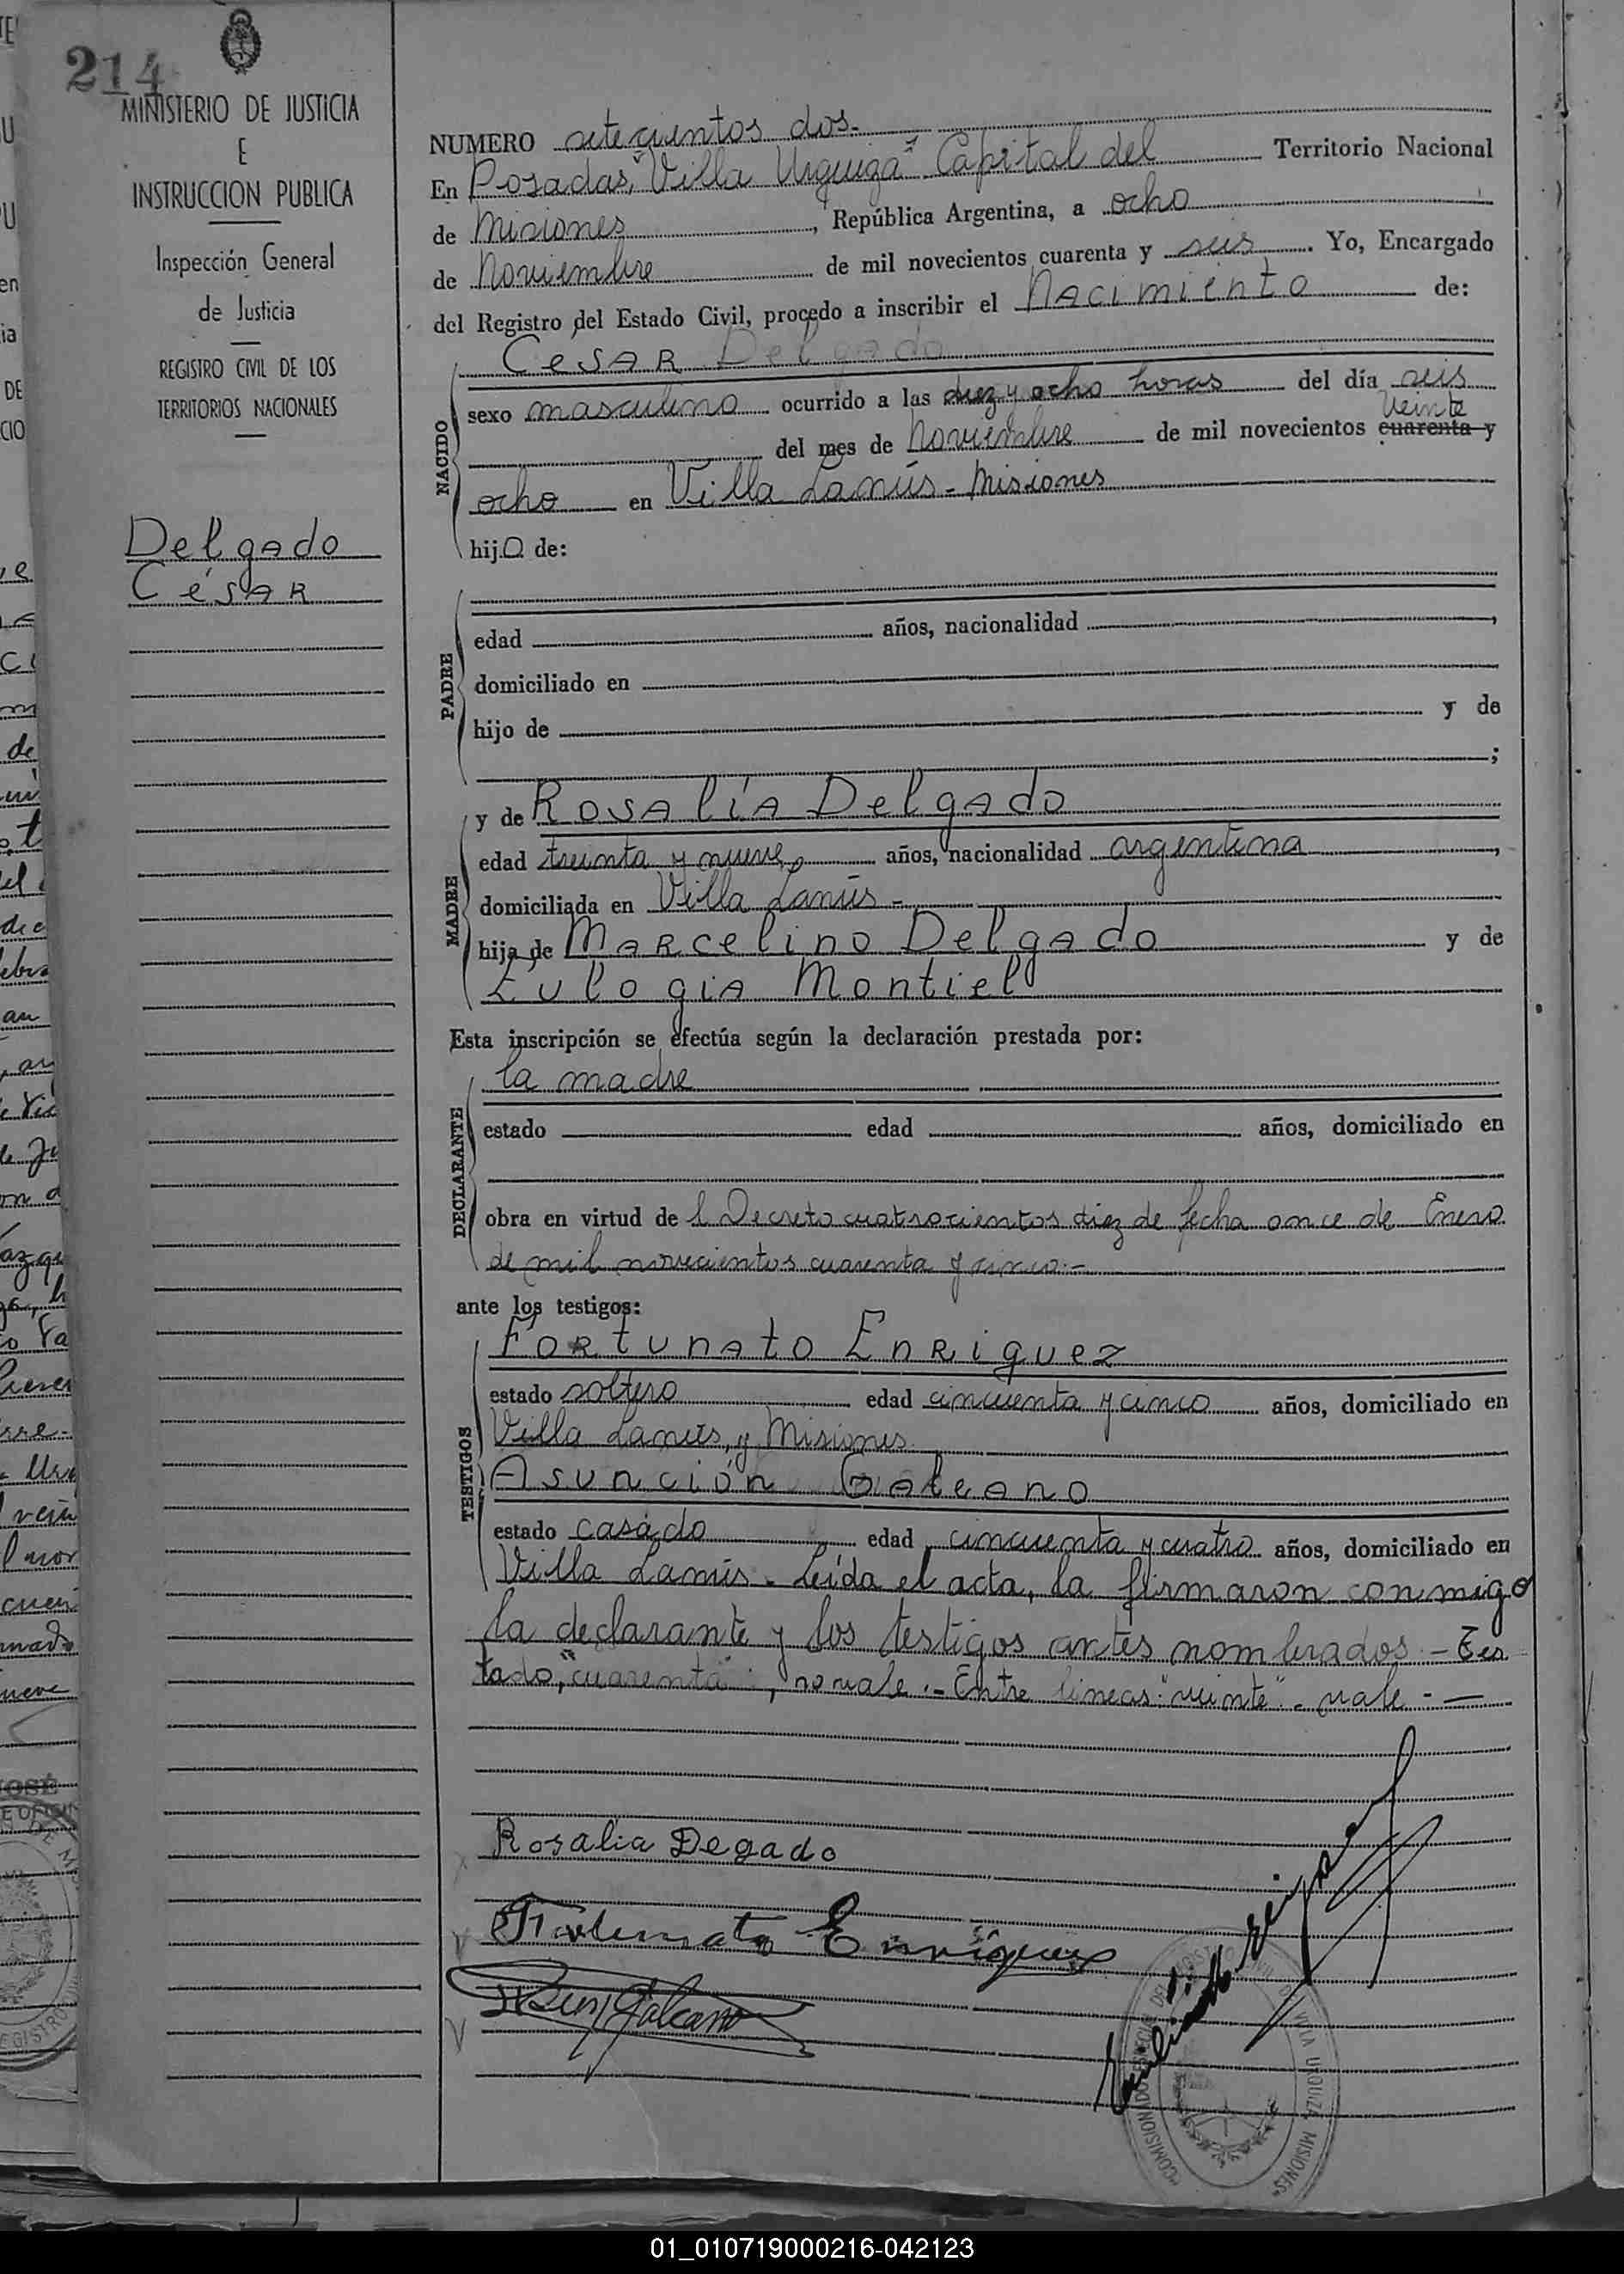 214
MINISTERIO DE JUSTICIA
E
INSTRUCCION PUBLICA
Inspección General
de Justicia
REGISTRO CIVIL DE LOS
TERRITORIOS NACIONALES
Delgado
César
NUMERO setecientos dos.-
En Posadas, "Villa Urquiza" Capital del Territorio Nacional
de Misiones, República Argentina, a ocho
de Noviembre de mil novecientos cuarenta y seis. Yo, Encargado
del Registro del Estado Civil, procedo a inscribir el Nacimiento de:
Cesar Delgado
NACIDO
sexo masculino ocurrido a las diez y ocho horas del día seis
veinte
del mes de Noviembre de mil novecientos cuarenta y
ocho en Villa Lanús - Misiones
hijo de:
PADRE
edad años, nacionalidad ,
domiciliado en
hijo de y de
;
MADRE
y de Rosalía Delgado
edad treinta y nueve, años, nacionalidad argentina,
domiciliada en Villa Lanús -
hija de Marcelino Delgado y de
Eulogia Montiel
Esta inscripción se efectúa según la declaración prestada por:
DECLARANTE
la madre
estado edad años, domiciliado en
obra en virtud del Decreto cuatrocientos diez de fecha once de Enero
de mil novecientos cuarenta y cinco.-
ante los testigos:
TESTIGOS
Fortunato Enriquez
estado soltero edad cincuenta y cinco años, domiciliado en
Villa Lanús, y Misiones
Asunción Galeano
estado casado edad cincuenta y cuatro años, domiciliado en
Villa Lanús - Leída el acta, la firmaron conmigo
la declarante y los testigos antes nombrados - Tes
tado, "cuarenta", no vale.- Entre lineas: "veinte" - vale -
Rosalia Degado
Fortunato Enriquez
Galeano
VILLA URQUIZA MISIONES
01_010719000216-042123